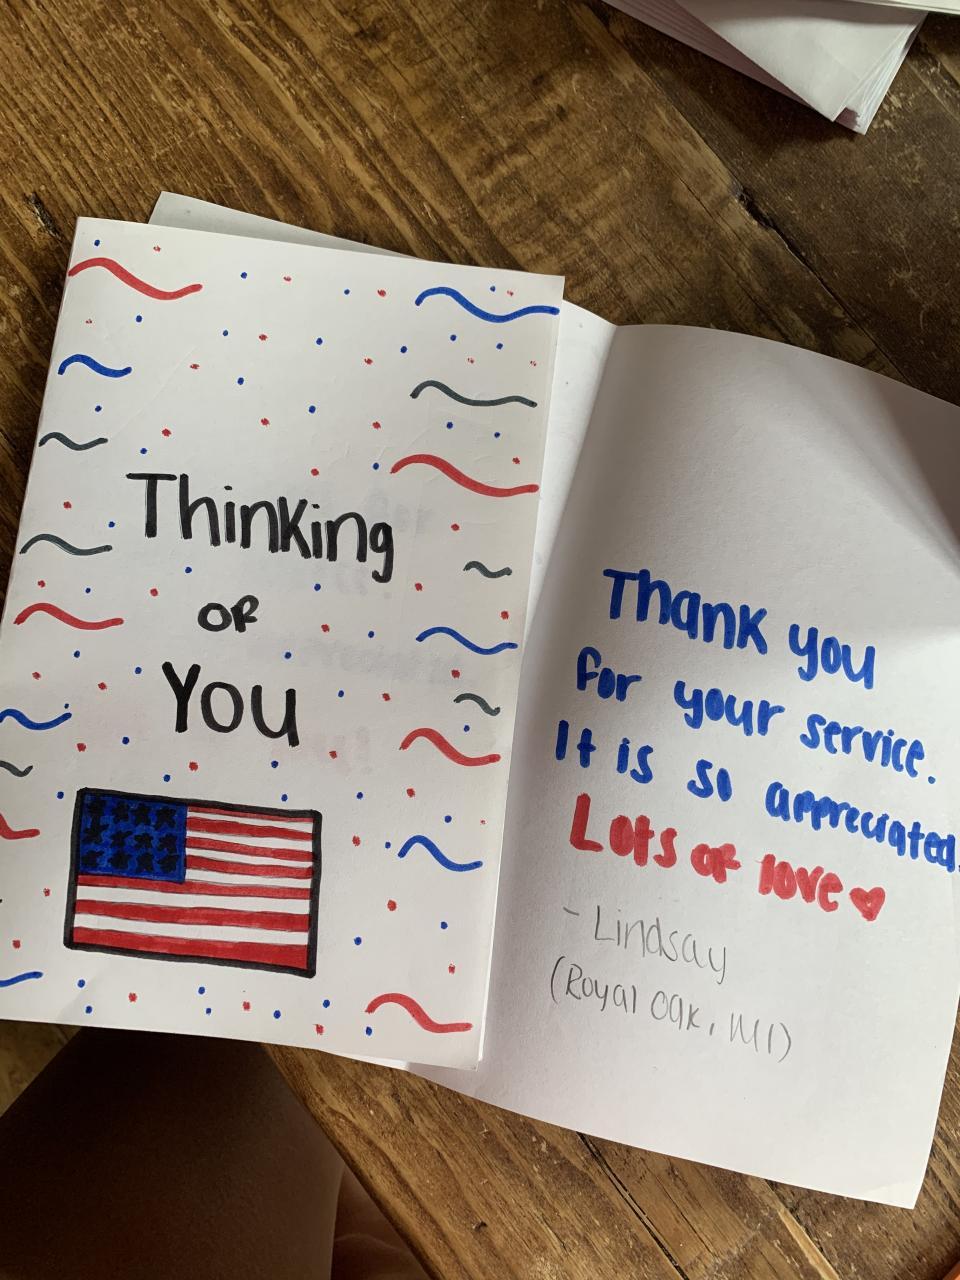 Thinking
OF
You
Thank you
for your service.
It is so appreciated.
Lots of love ♥
- Lindsay
(Royal Oak, MI)